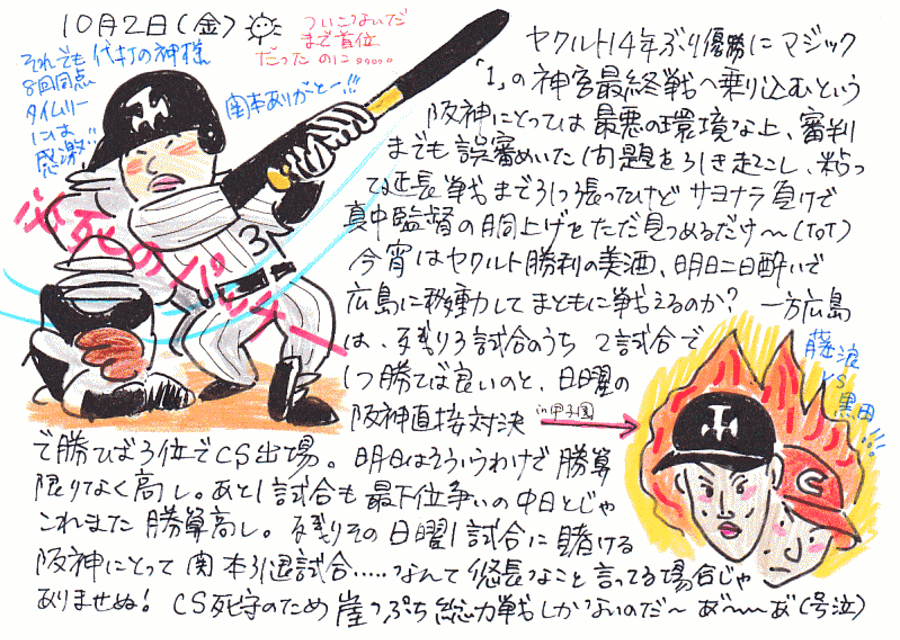 10月2日(金)
ついこないだ
まで首位
だったのに……
それでも代打の神様
8回同点
タイムリー
には
感激!!
関本ありがとー!!!
必死のパッチー
3
ヤクルト14年ぶり優勝にマジック
「1」の神宮最終戦へ乗り込むという
阪神にとっては最悪の環境な上、審判
までも誤審めいた問題を引き起こし、粘っ
て延長戦まで引っ張ったけどサヨナラ負けで
真中監督の胴上げをただ見つめるだけ〜(ToT)
今宵はヤクルト勝利の美酒、明日二日酔いで
広島に移動してまともに戦えるのか? 一方広島
は、残り3試合のうち2試合で
1つ勝てば良いのと、日曜の
阪神直接対決 in甲子園
で勝ちば3位でCS出場。明日はそういうわけで勝算
限りなく高し。あと1試合も最下位争いの中日とじゃ
これまた勝算高し。残りその日曜1試合に賭ける
阪神にとって関本引退試合……なんて悠長なこと言ってる場合じゃ
ありませぬ! CS死守のため崖っぷち総力戦しかないのだ〜あ゛〜〜あ゛(号泣)
藤浪
VS
黒田
!!!
C